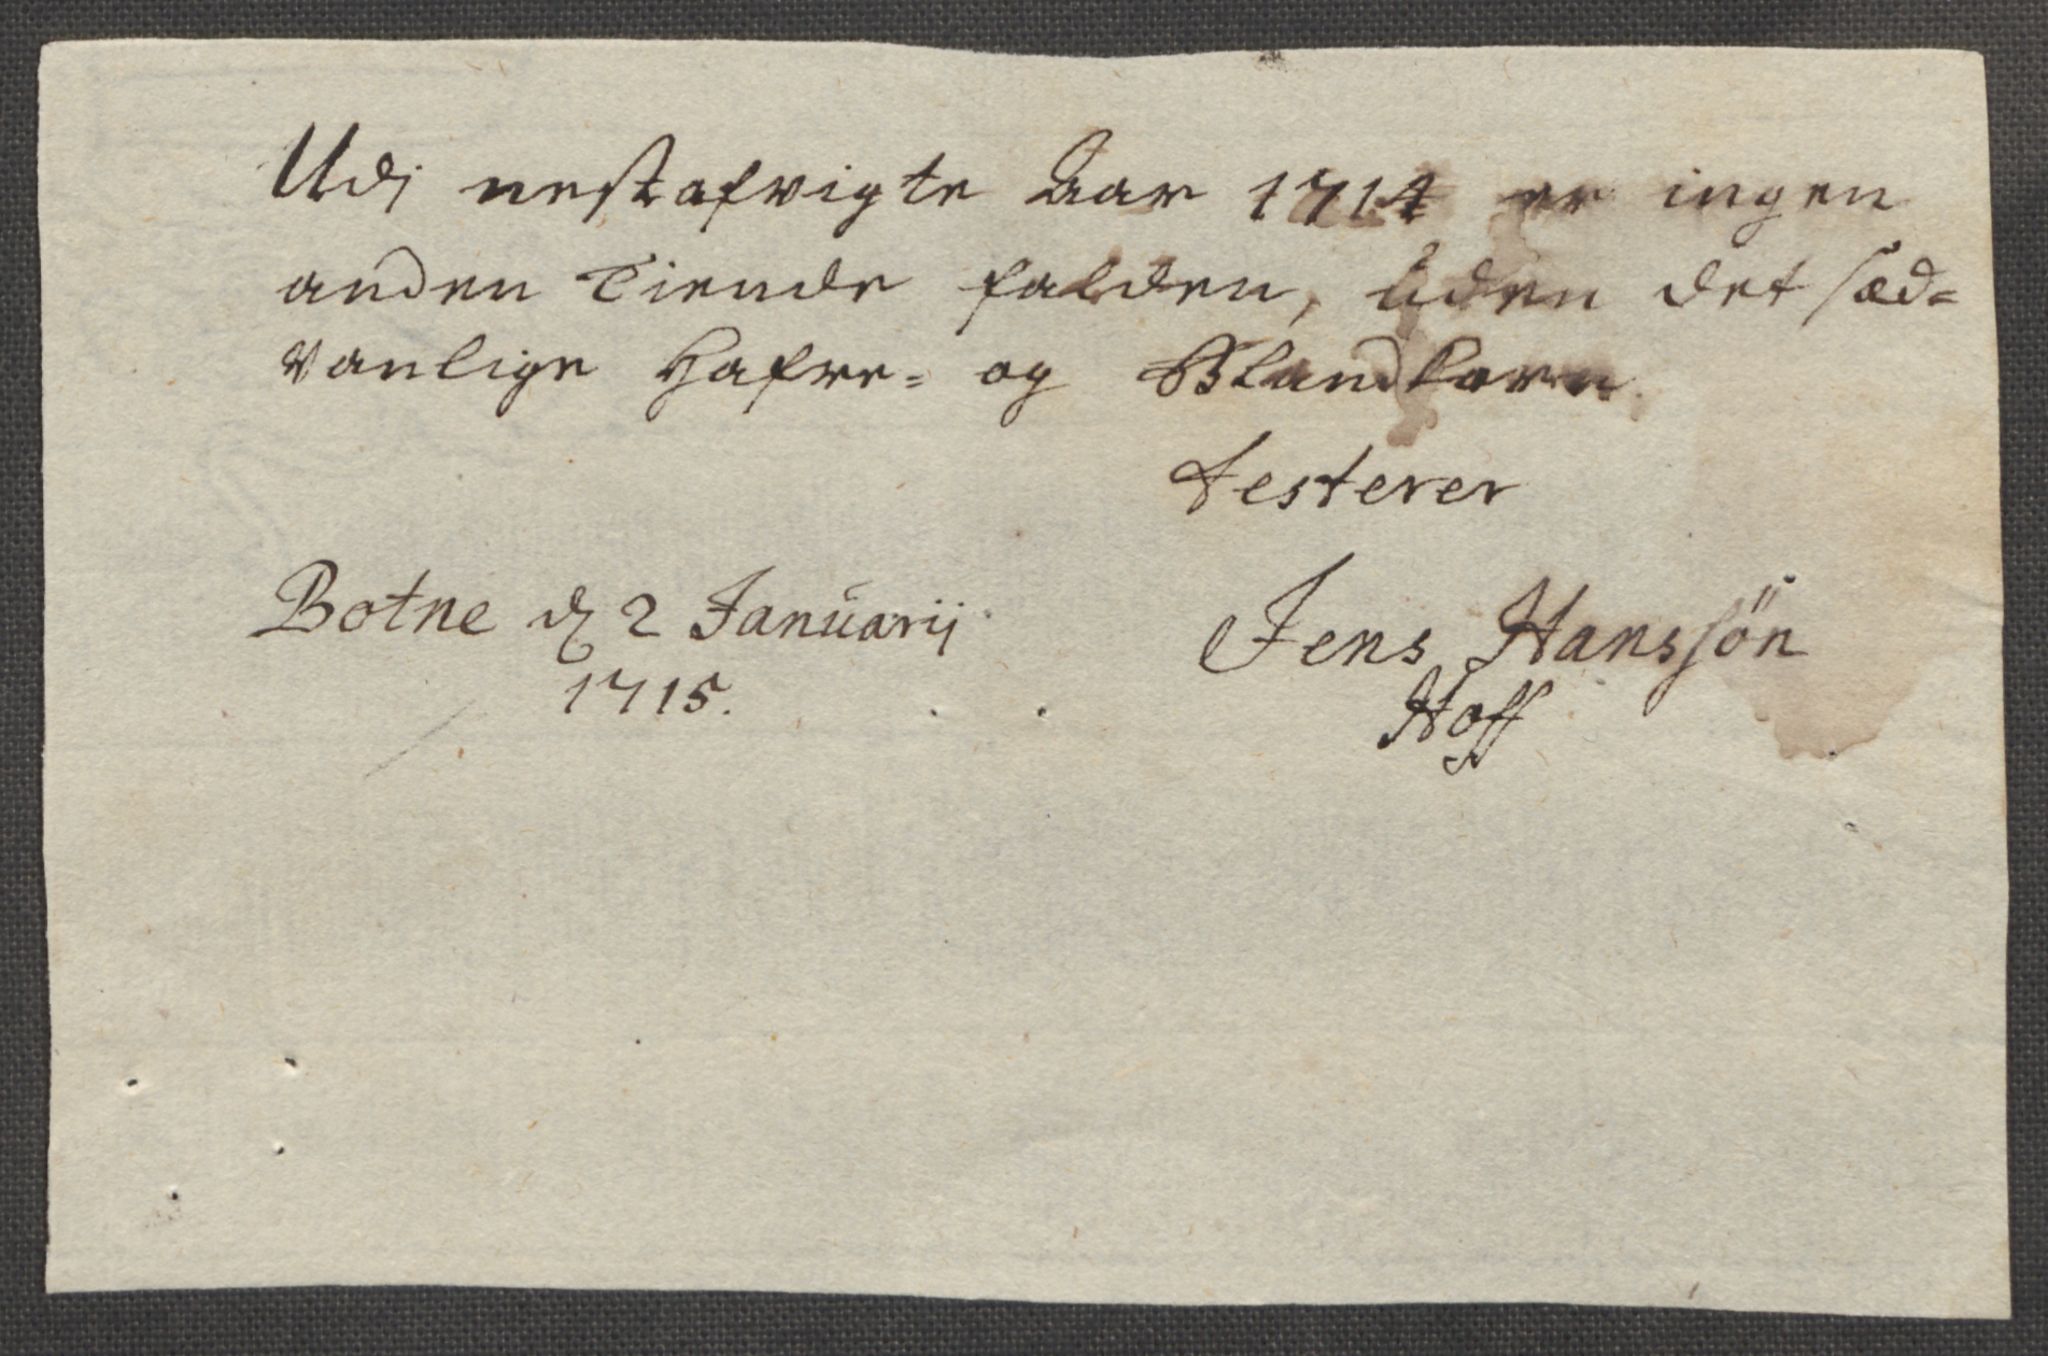 Udj nestafvigte Aar 1714 er ingen
anden Tiende falden, uden det sæd=
vanlige Hafre= og Blandkorn.
testerer
Botne d 2 Januarij
1715.
Jens Hanssön
Hoff